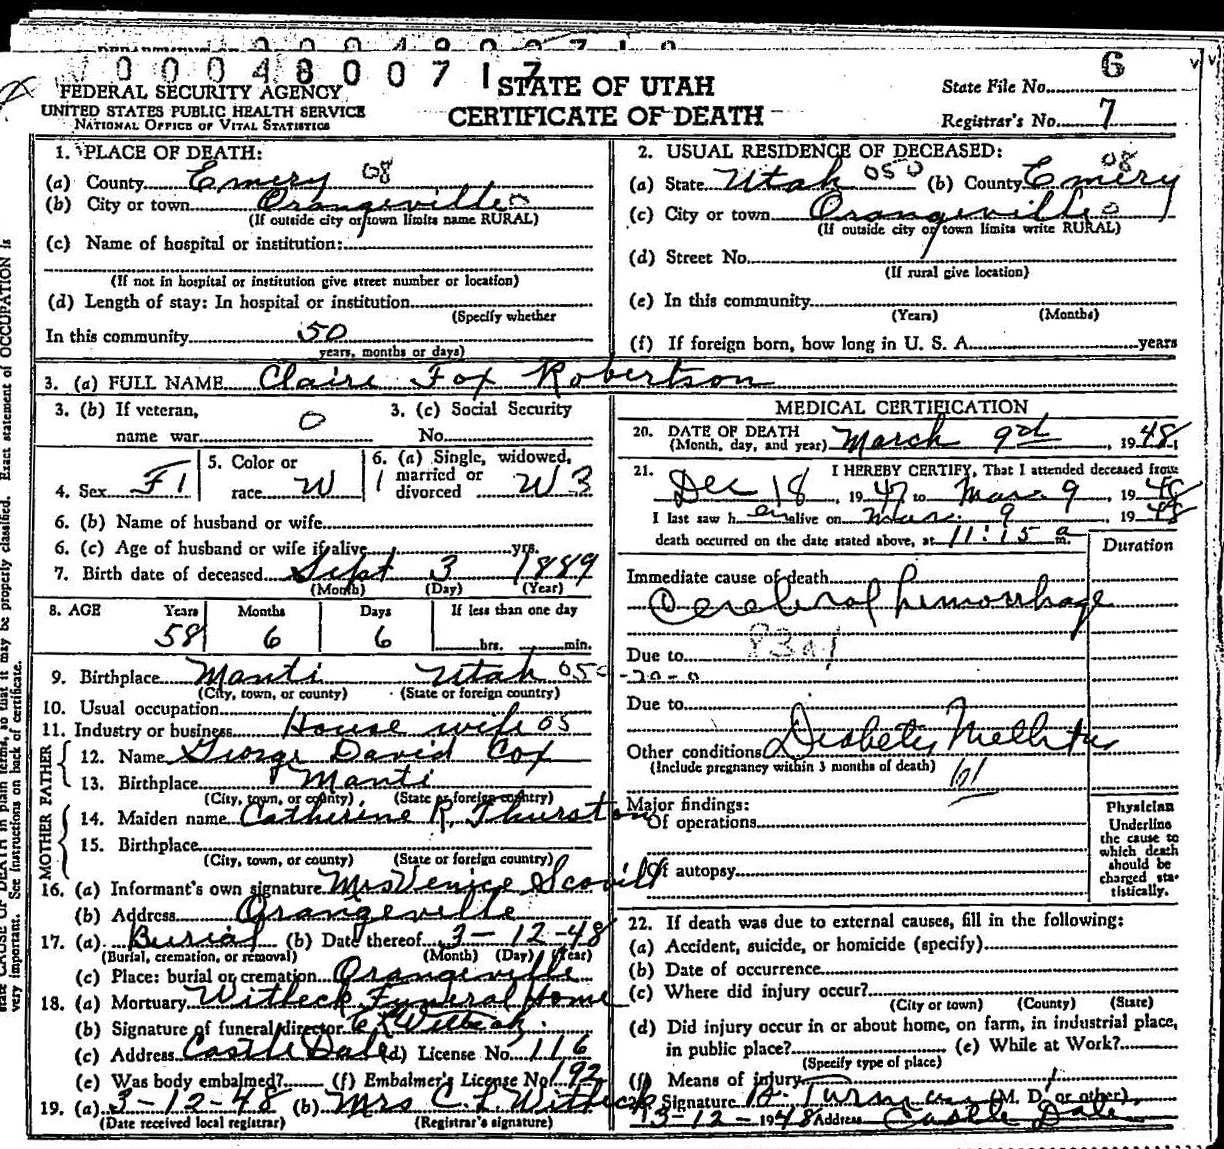 0004800717
FEDERAL SECURITY AGENCY
UNITED STATES PUBLIC HEALTH SERVICE
NATIONAL OFFICE OF VITAL STATISTICS
STATE OF UTAH
CERTIFICATE OF DEATH
State File No. 6
Registrar's No. 7
1. PLACE OF DEATH:
(a) County Emery 08
(b) City or town Orangeville 0
(If outside city or town limits name RURAL)
(c) Name of hospital or institution:
(If not in hospital or institution give street number or location)
(d) Length of stay: In hospital or institution
(Specify whether
In this community 50
years, months or days)
2. USUAL RESIDENCE OF DECEASED:
(a) State Utah 050 (b) County Emery 08
(c) City or town Orangeville 0
(If outside city or town limits write RURAL)
(d) Street No.
(If rural give location)
(e) In this community
(Years) (Months)
(f) If foreign born, how long in U. S. A. years
3. (a) FULL NAME Claire Fox Robertson
3. (b) If veteran,
name war 0
3. (c) Social Security
No.
4. Sex F 1
5. Color or
race W
6. (a) Single, widowed,
married or
divorced W 3
6. (b) Name of husband or wife
6. (c) Age of husband or wife if alive yrs.
7. Birth date of deceased Sept 3 1889
(Month) (Day) (Year)
8. AGE Years Months Days If less than one day
58 6 6 hrs. min.
9. Birthplace Manti Utah 05
(City, town, or county) (State or foreign country)
10. Usual occupation
11. Industry or business House wife 05
FATHER
12. Name George David Cox
13. Birthplace Manti
(City, town, or county) (State or foreign country)
MOTHER
14. Maiden name Catherine R. Thurston
15. Birthplace
(City, town, or county) (State or foreign country)
16. (a) Informant's own signature Mrs Venice Scovill
(b) Address Orangeville
17. (a) Burial (b) Date thereof 3-12-48
(Burial, cremation, or removal) (Month) (Day) (Year)
(c) Place: burial or cremation Orangeville
18. (a) Mortuary Witbeck Funeral Home
(b) Signature of funeral director C L Witbeck
(c) Address Castle Dale (d) License No. 116
(e) Was body embalmed? (f) Embalmer's License No. 192
19. (a) 3-12-48 (b) Mrs C. L. Witbeck
(Date received local registrar) (Registrar's signature)
MEDICAL CERTIFICATION
20. DATE OF DEATH
(Month, day, and year) March 9d, 1948
21. I HEREBY CERTIFY, That I attended deceased from
Dec 18, 1947 to Mar. 9, 1948
I last saw h er alive on Mar. 9, 1948
death occurred on the date stated above, at 11:15 a m.
Duration
Immediate cause of death
Cerebral hemorrhage
Due to 83a1
-20-0
Due to
Other conditions Diabetes Mellitus
(Include pregnancy within 3 months of death) 61
Major findings:
Of operations
Of autopsy
Physician
Underline
the cause to
which death
should be
charged sta-
tistically.
22. If death was due to external causes, fill in the following:
(a) Accident, suicide, or homicide (specify)
(b) Date of occurrence
(c) Where did injury occur?
(City or town) (County) (State)
(d) Did injury occur in or about home, on farm, in industrial place,
in public place? (e) While at Work?
(Specify type of place)
(f) Means of injury 1
Signature (M. D. or other)
3-12-1948 Address Castle Dale
state CAUSE OF DEATH in plain terms, so that it may be properly classified. Exact statement of OCCUPATION is
very important. See instructions on back of certificate.